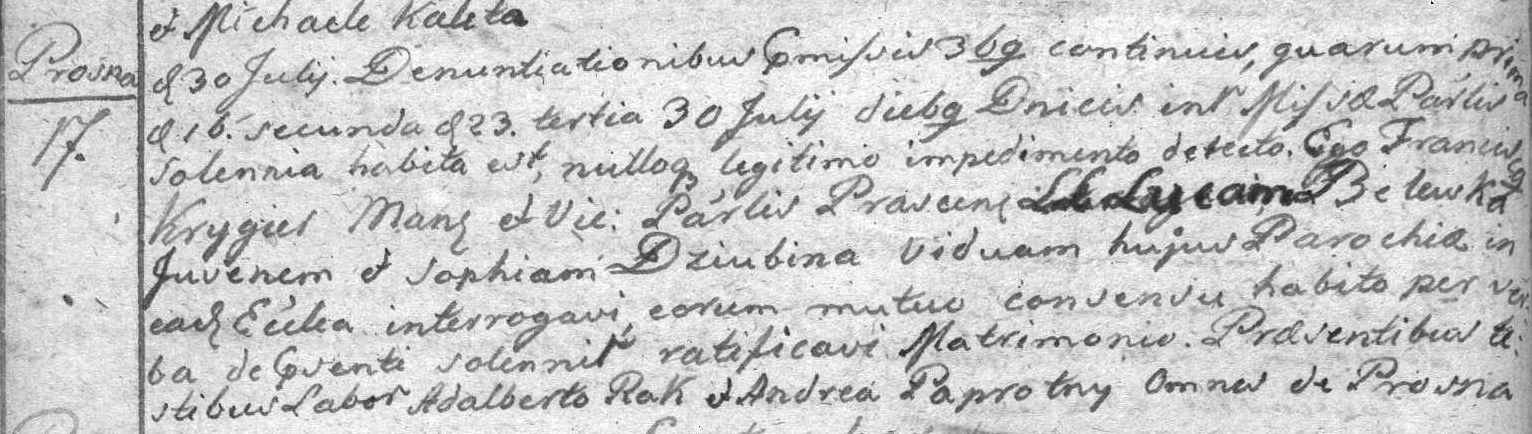 & Michaele Kaleta
Prosna
d 30 Julij. Denuntiationibus pmissis 3bg continuis, quarum prima
17.
d 16. secunda d 23. tertia 30 Julij diebg Dnicis intr Missæ Parlis
solennia habita est, nulloq legitimo impedimento detecto. Ego Franciscg
Krygier Manz & Vic: Parlis Prascenz Belewka
Juvenem & Sophiam Dziubina Viduam hujus Parochiæ in
eadz Ecclea interrogavi, eorum mutuo consensu habito per ver
ba de psenti solennitr ratificavi Matrimonio. Præsentibus te:
stibus Labor Adalberto Rak & Andrea Paprotny Omnes de Prosna